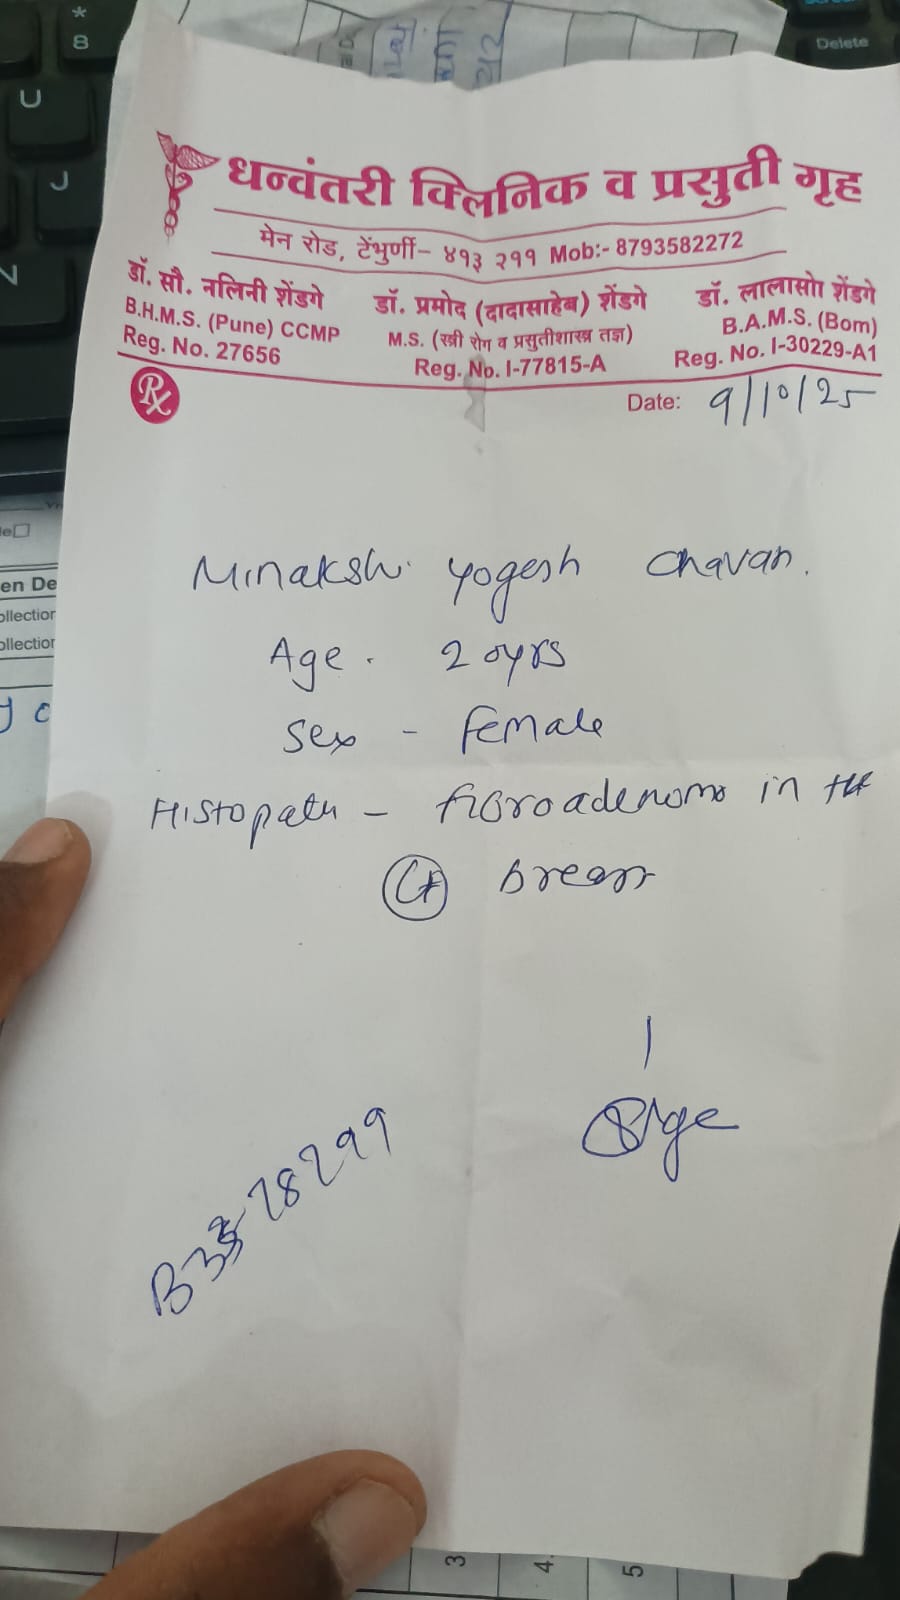 धन्वंतरी क्लिनिक व प्रसुती गृह
मेन रोड, टेंभुर्णी– ४१३ २११ Mob:- 8793582272
डॉ. सौ. नलिनी शेंडगे
B.H.M.S. (Pune) CCMP
Reg. No. 27656
डॉ. प्रमोद (दादासाहेब) शेंडगे
M.S. (स्त्री रोग व प्रसुतीशास्त्र तज्ञ)
Reg. No. I-77815-A
डॉ. लालासो शेंडगे
B.A.M.S. (Bom)
Reg. No. I-30229-A1
Rx
Date: 9/10/25
Minakshi Yogesh Chavan.
Age. 20yrs
Sex - Female
Histopath - fibroadenoma in the
Lt breast
28299
*
8
U
J
N
Delete
en De
ollection
ollection
3
4.
5